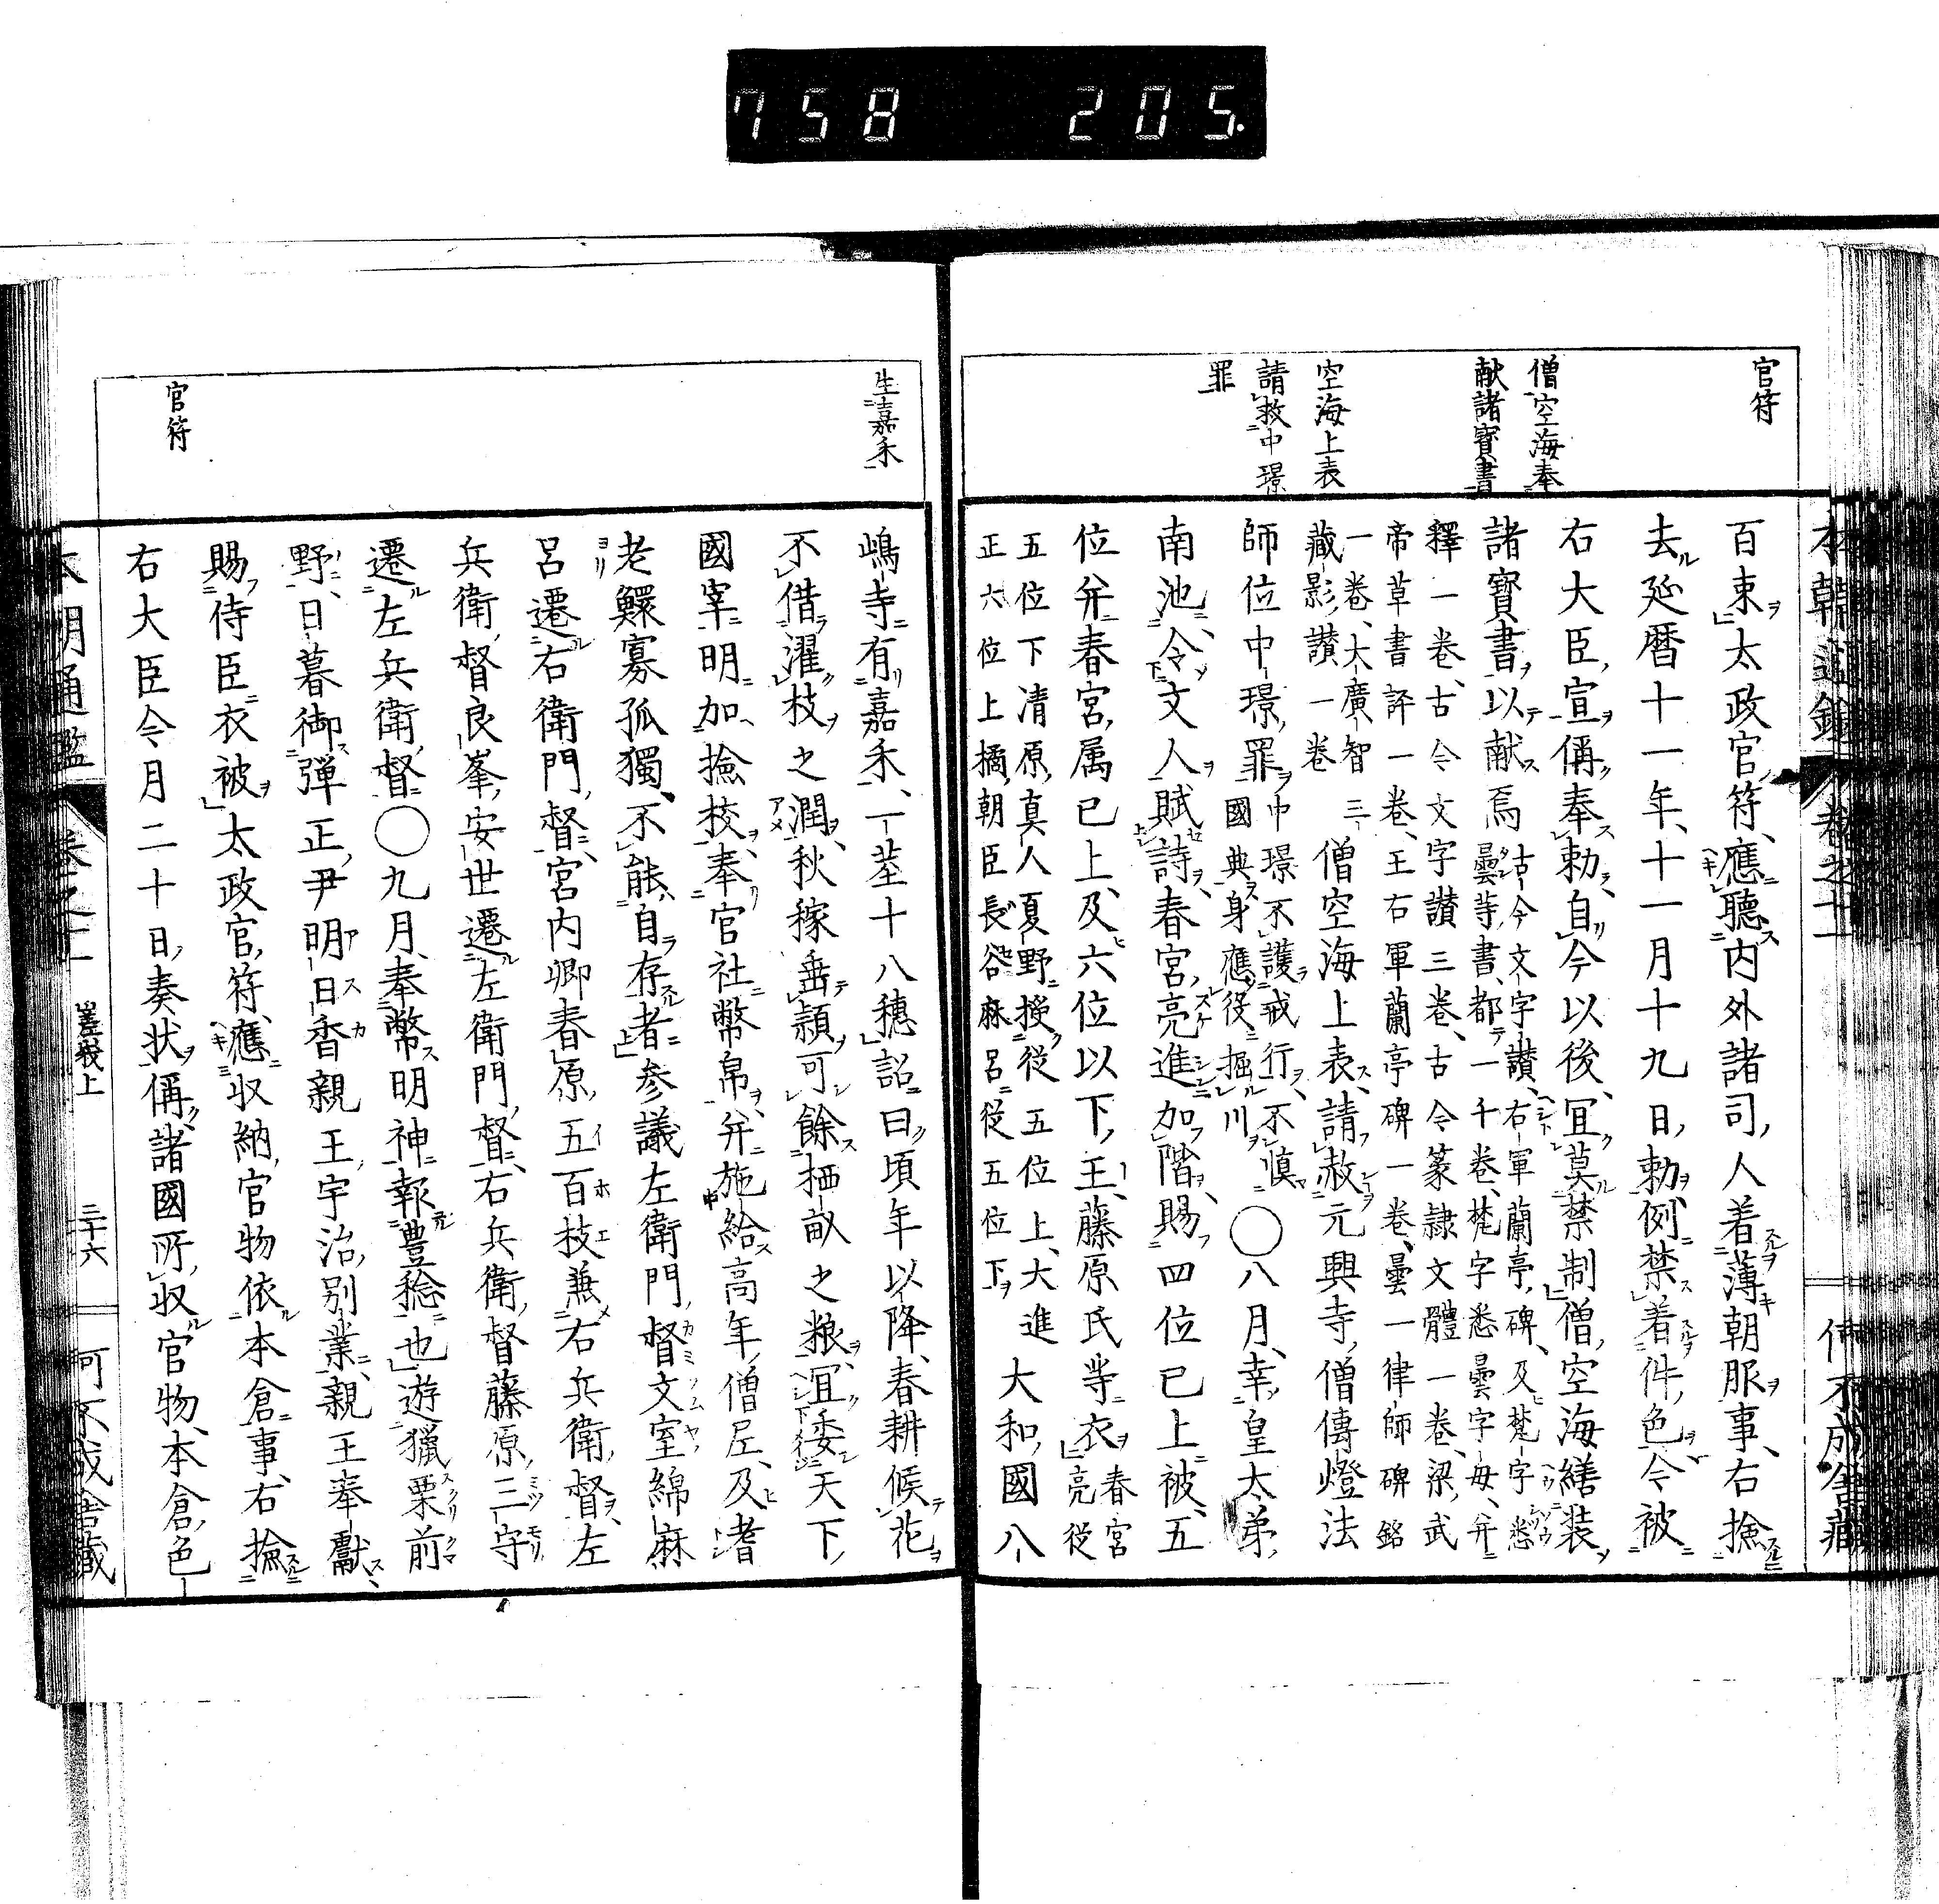 758 205.
官符
僧空海奉
獻諸寶書
空海上表
請救中璟
罪
百束太政官符應聽内外諸司人着薄朝服事右撿
去延暦十一年十一月十九日勅例禁着件色今被
右大臣宣偁奉勅自今以後冝莫禁制僧空海繕装
諸寳書以献焉
古今文字讃右軍蘭亭碑及梵字悉
曇等書都一千卷梵字悉曇字母并
釋一卷古今文字讃三卷古今篆隷文體一卷梁武
帝草書評一卷王右軍蘭亭碑一卷曇一律師碑銘
一卷大廣智三
藏影讃一卷
僧空海上表請赦元興寺僧傳燈法
師位中璟罪
中璟不護戒行不慎
國典身應役掘川
○八月幸皇太弟
南池令文人賦詩春宮亮進加階賜四位已上被五
位并春宮属已上及六位以下王藤原氏等衣
春宮
亮從
五位下清原真人夏野授從五位上大進
正六位上橘朝臣長谷麻呂從五位下
大和國八
生嘉禾
官符
嶋寺有嘉禾一莖十八穗詔曰頃年以降春耕候花
不借濯枝之潤秋稼垂穎可餘栖畝之粮冝委天下
國宰明加撿挍奉官社幣帛并施給高年僧尼及耆
老鰥寡孤獨不能自存者参議左衛門督文室綿麻
呂遷右衛門督宮内卿春原五百枝兼右兵衛督左
兵衛督良峯安世遷左衛門督右兵衛督藤原三守
遷左兵衛督○九月奉幣明神報豊稔也遊獵栗前
野日暮御弾正尹明日香親王宇治別業親王奉獻
賜侍臣衣被太政官符應収納官物依本倉事右撿
右大臣今月二十日奏状偁諸國所収官物本倉色
本朝通鑑 卷之二十 嵯峨上 三十六